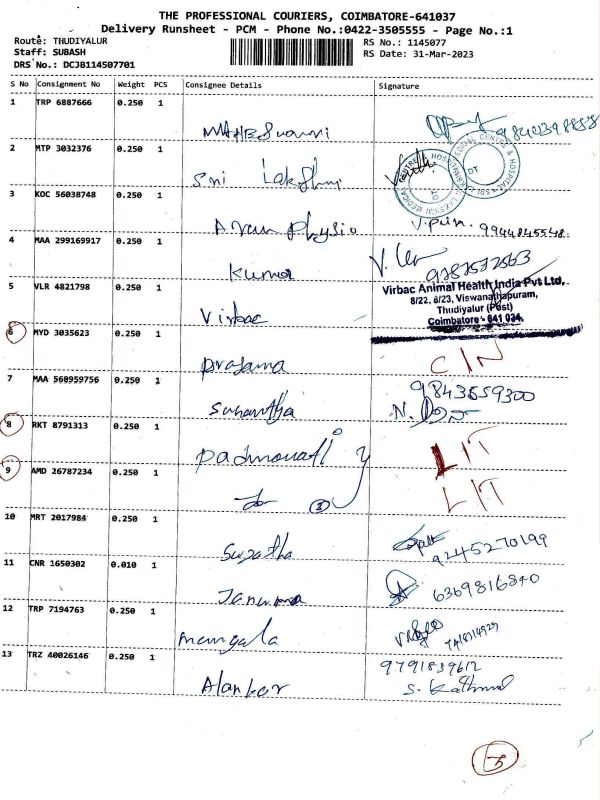 THE PROFESSIONAL COURIERS, COIMBATORE-641037
Delivery Runsheet - PCM - Phone No.:0422-3505555 - Page No.:1
Route: THUDIYALUR
Staff: SUBASH
DRS No.: DCJB114507701
RS No.: 1145077
RS Date: 31-Mar-2023
S No Consignment No Weight PCS Consignee Details Signature
1 TRP 6887666 0.250 1
Maheswari
2 MTP 3032376 0.250 1
Sri Lakshmi
3 KOC 56038748 0.250 1
Arun Physio 9944845548
4 MAA 299169917 0.250 1
Kumar 9787572563
5 VLR 4821798 0.250 1
Virbac
Virbac Animal Health India Pvt Ltd,
8/22, 8/23, Viswanathapuram,
Thudiyalur (Post)
Coimbatore - 641 034.
6 MYD 3035623 0.250 1
C/N
7 MAA 568959756 0.250 1
9843559300
8 RKT 8791313 0.250 1
LIT
9 AMD 26787234 0.250 1
LIT
10 MRT 2017984 0.250 1
Sujatha 9245270199
11 CNR 1650302 0.010 1
6369816840
12 TRP 7194763 0.250 1
mangala
13 TRZ 40026146 0.250 1
Alankar 9791839612